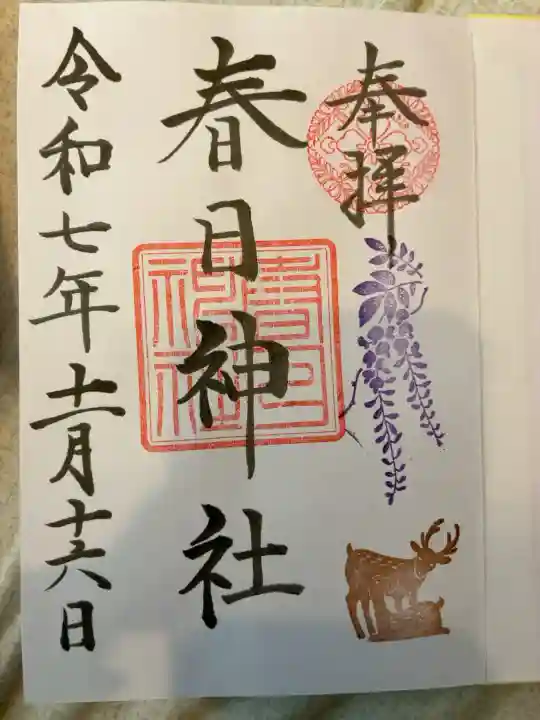 奉拝
春日神社
令和七年十一月十六日